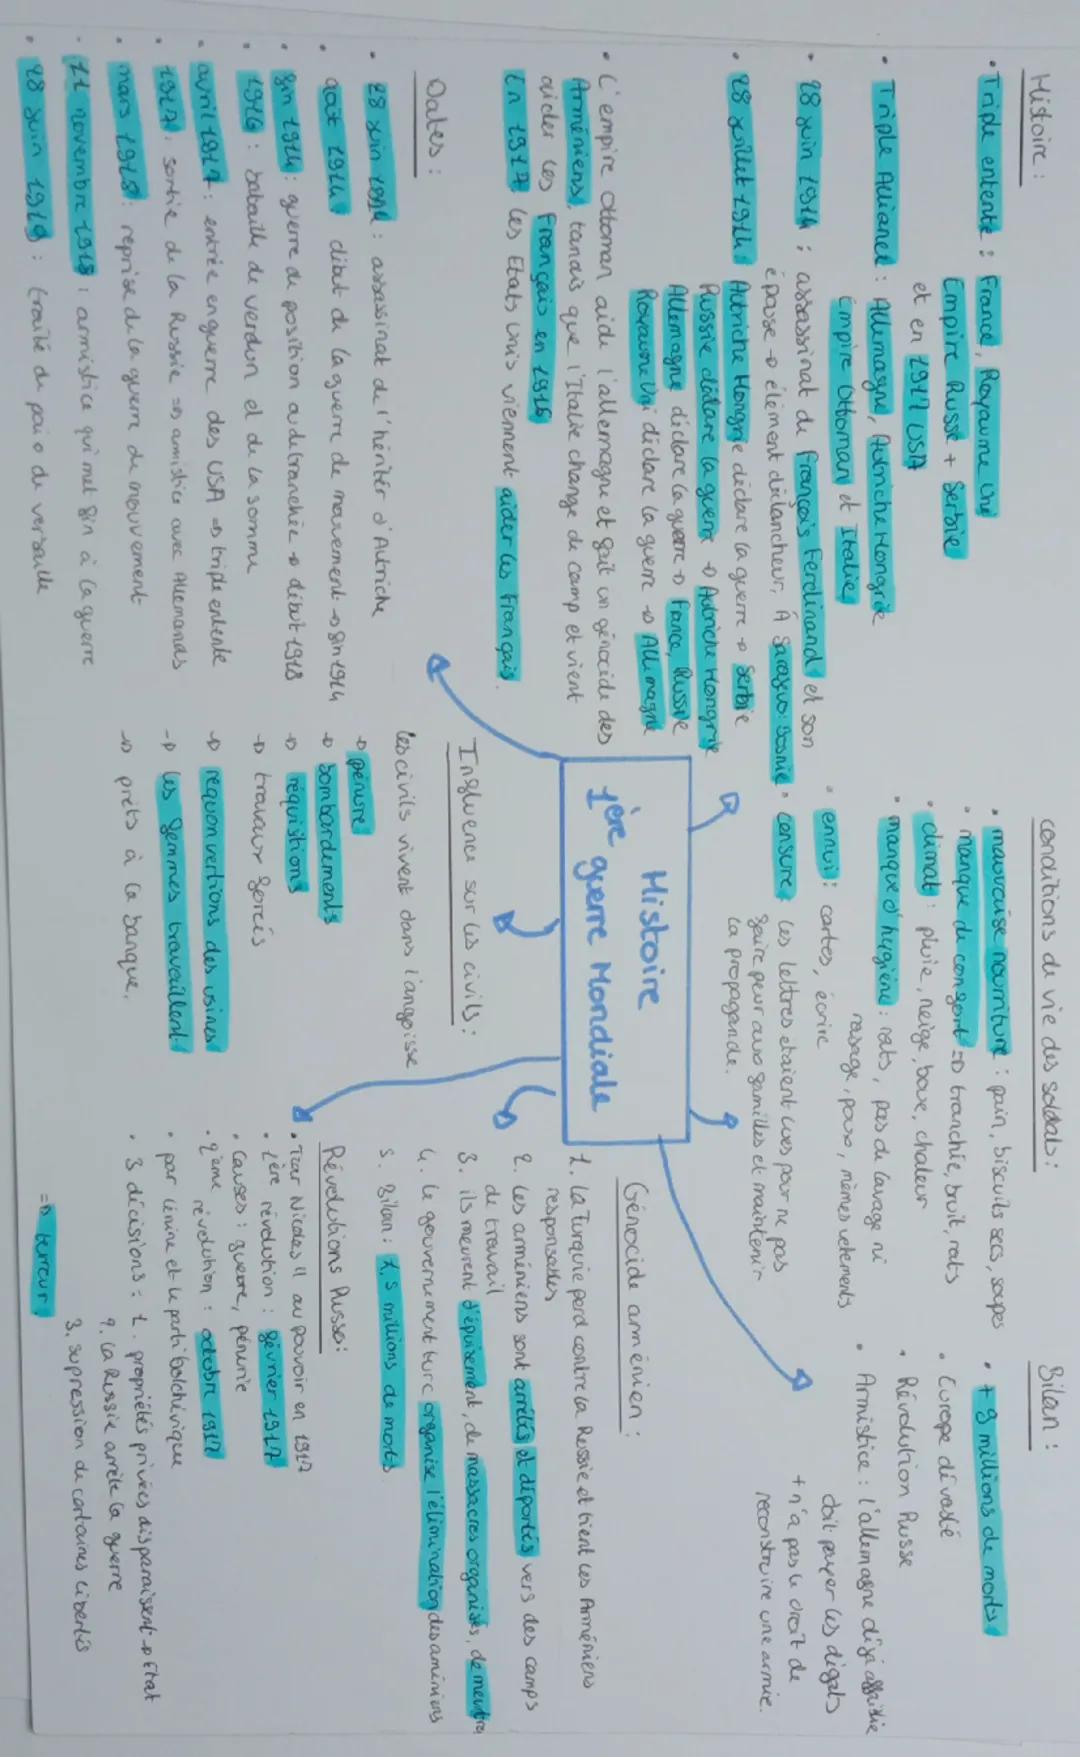 Histoire :
• Triple entente : France, Royaume Uni
Empire Russe + Serbie
et en 1917 USA
• Triple Alliance : Allemagne, Autriche Hongrie
Empire Ottoman et Italie
• 28 juin 1914 : assassinat de François Ferdinand et son
épouse → élément délancheur, A Sarajevo: Bosnie
• 28 juillet 1914 : Autriche Hongrie déclare la guerre → Serbie
Russie déclare la guerre → Autriche Hongrie
Allemagne déclare la guerre → France, Russie
Royaume Uni déclare la guerre → Allemagne
• L'empire Ottoman aide l'allemagne et fait un génocide des
Arméniens, tandis que l'Italie change de camp et vient
aider les Français en 1915
En 1917 les Etats Unis viennent aider les français.
Dates :
• 28 juin 1914 : assassinat de l'héritier d'Autriche
• août 1914 : début de la guerre de mouvement → fin 1914
• fin 1914 : guerre de position ou de tranchée → début 1918
• 1916 : bataille de verdun et de la somme
• avril 1917 : entrée en guerre des USA ⇒ triple entente
• 1917 : sortie de la Russie ⇒ armistice avec Allemands
• mars 1918 : reprise de la guerre de mouvement
• 11 novembre 1918 : armistice qui met fin à la guerre
• 28 juin 1919 : traité de paix de versaille
conditions de vie des soldats :
• mauvaise nourriture : pain, biscuits secs, soupes
• manque de confort ⇒ tranchée, bruit, rats
• climat : pluie, neige, boue, chaleur
• manque d'hygiène : rats, pas de lavage ni
rasage, poux, mêmes vetements
• ennui : cartes, écrire
• Censure : les lettres étaient lues pour ne pas
faire peur aux familles et maintenir
la propagande.
Histoire
1ère guerre Mondiale
Influence sur les civils :
les civils vivent dans l'angoisse
→ pénurie
→ bombardements
→ réquisitions
→ travaux forcés
→ requonvertions des usines
→ les femmes travaillent
→ prêts à la banque.
Bilan :
• + 9 millions de morts
• Europe dévasté
• Révolution Russe
• Armistice : l'allemagne déjà affaiblie
doit payer les dégats
+ n'a pas le droit de
reconstruire une armée.
Génocide arménien :
1. La Turquie perd contre la Russie et tient les Arméniens
responsables
2. Les arméniens sont arrêtés et déportés vers des camps
de travail
3. ils meurent d'épuisement, de massacres organisés, de meurtres
4. Le gouvernement turc organise l'élimination des améniens
5. Bilan : 1,5 millions de morts
Révolutions Russe :
• Tsar Nicolas II au pouvoir en 1917
• 1ère révolution : février 1917
• Causes : guerre, pénurie
• 2ème révolution : octobre 1917
• par Lénine et le parti bolchévique
• 3 décisions : 1. propriétés privées disparaissent → Etat
2. la Russie arrête la guerre
3. supression de certaines libertés
⇒ terreur